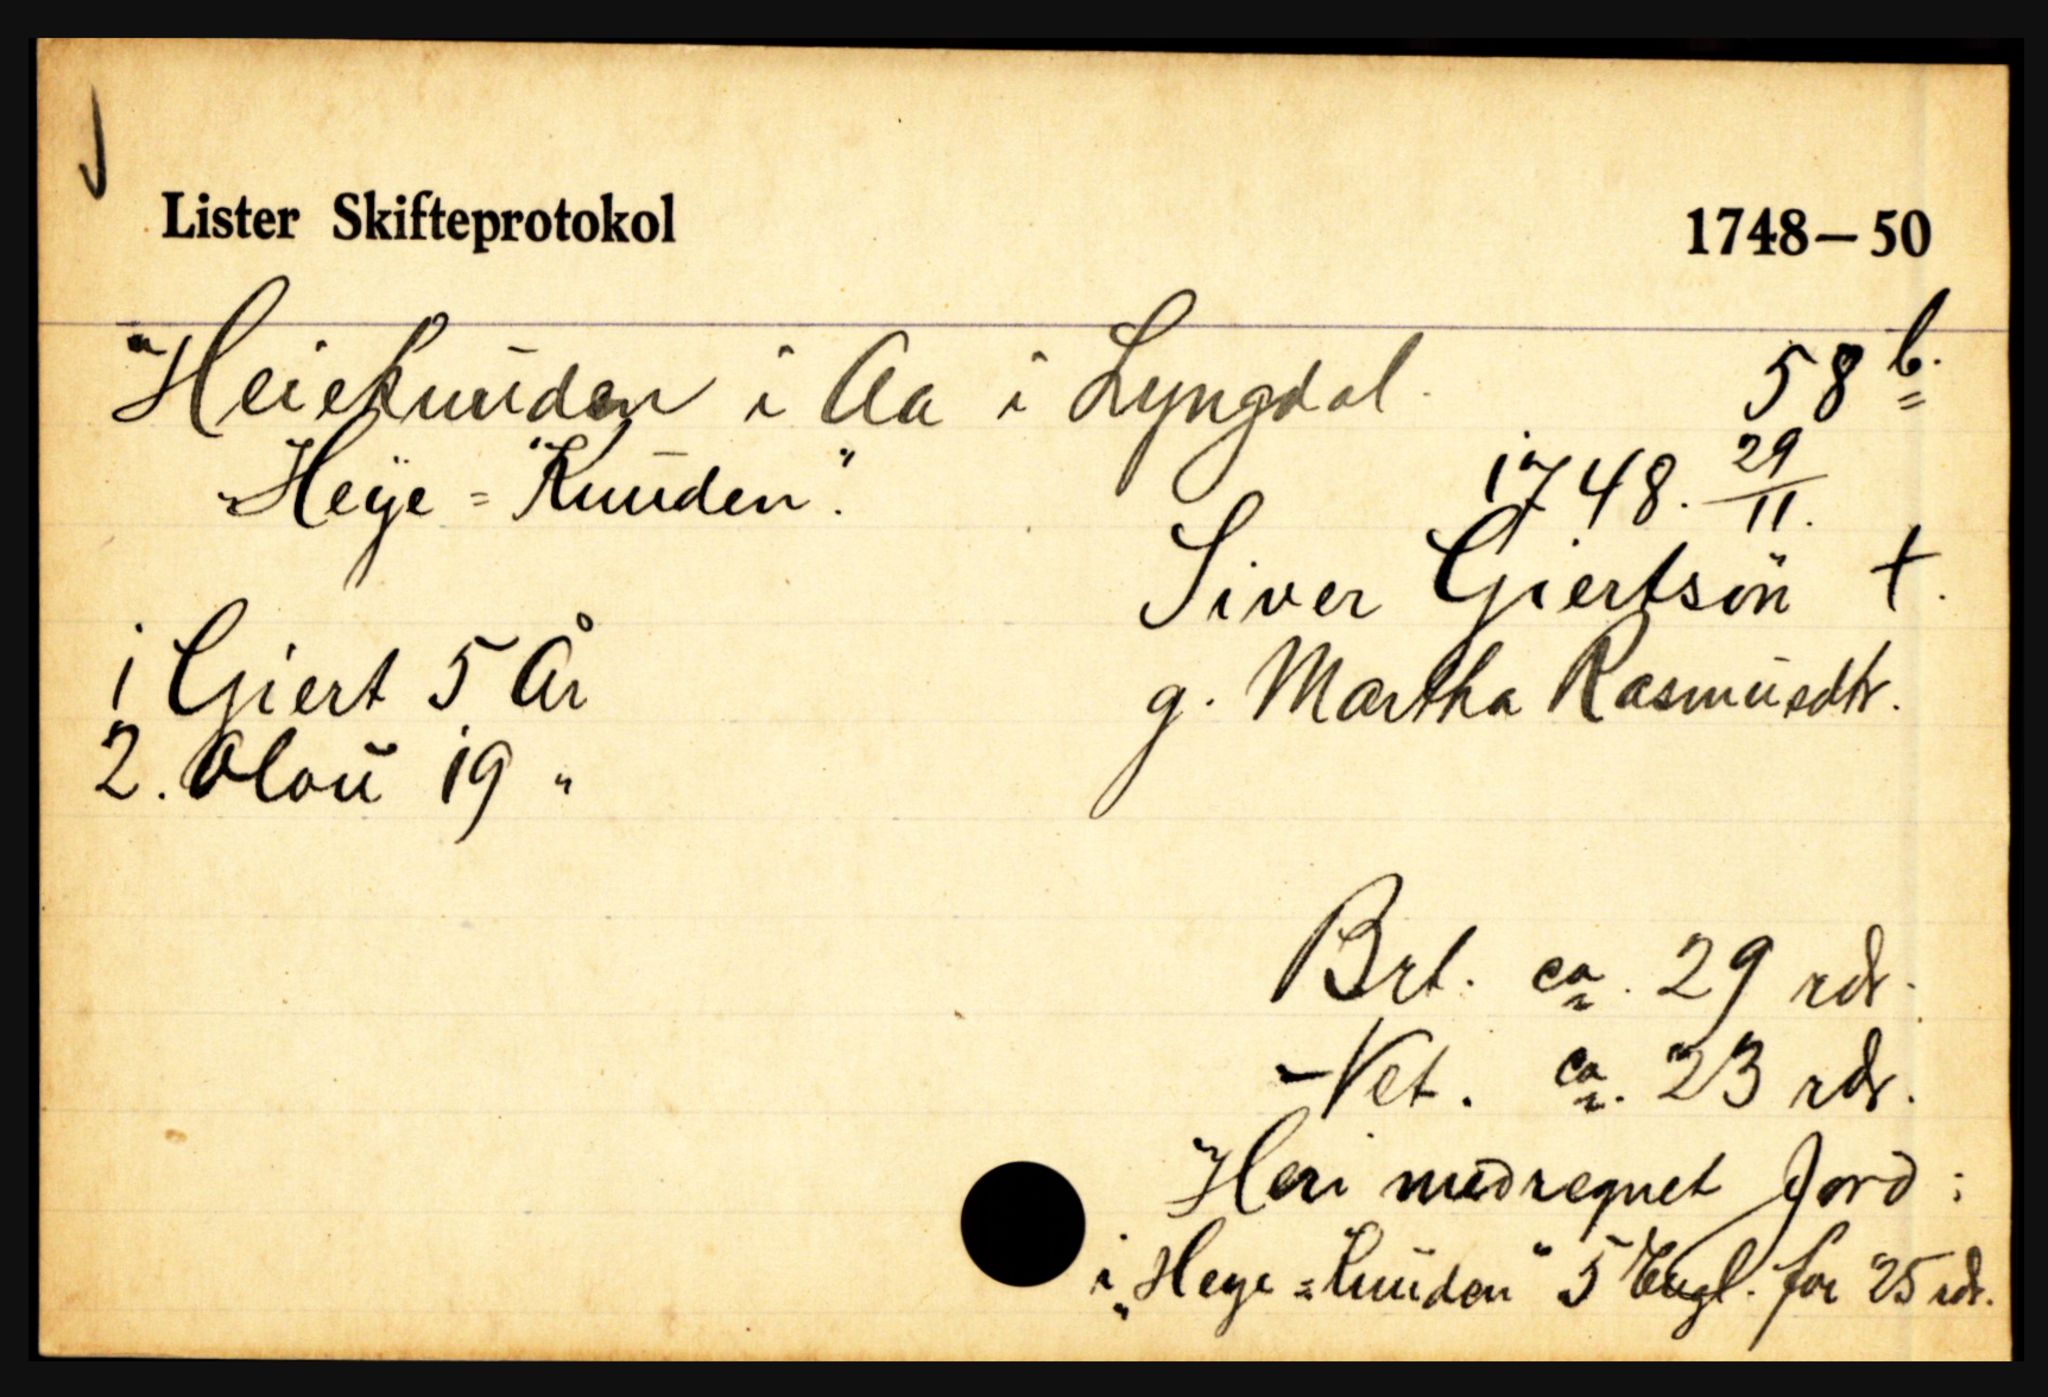 Lister Skifteprotokol 1748–50
"Heieknuden i Aa i Lyngdal. 58 b.
"Heÿe="Knuden". 1748. 29/11.
Siver Giertsön †.
1 Giert 5 År g. Martha Rasmusdtr.
2. Olau 19 "
Brt. ca. 29 rdr.
Net. ca. 23 rdr.
Heri medregnet Jord:
i "Heye=Knuden" 5 Engl. for 25 rdr.